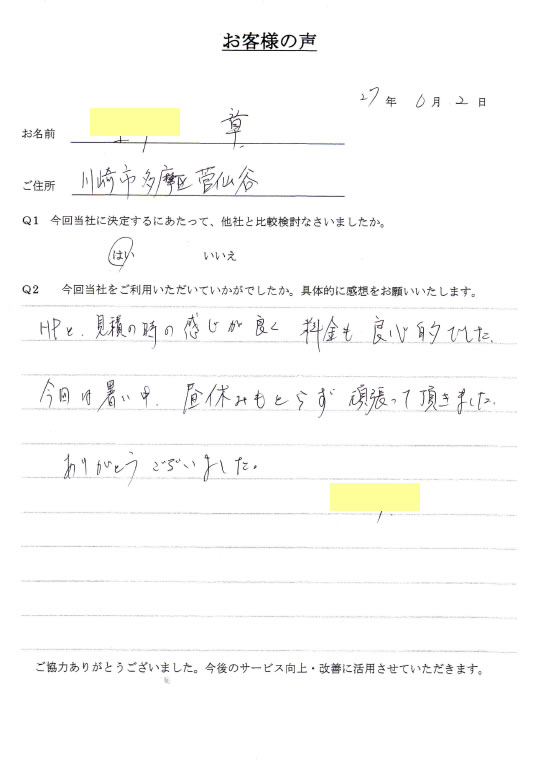 お客様の声
27年 6月 2日
お名前 章
ご住所 川崎市多摩区菅仙谷
Q1 今回当社に決定するにあたって、他社と比較検討なさいましたか。
はい いいえ
Q2 今回当社をご利用いただいていかがでしたか。具体的に感想をお願いいたします。
HPと、見積の時の感じが良く 料金も良心的でした。
今回は暑い中、昼休みもとらず頑張って頂きました。
ありがとうございました。
ご協力ありがとうございました。今後のサービス向上・改善に活用させていただきます。